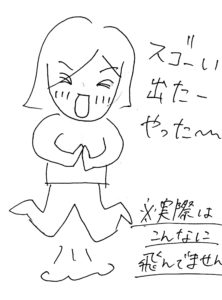 スゴーい
出たー
やった～
※実際は
こんなに
飛んでません